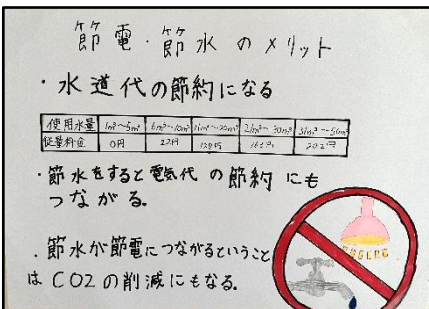 節電・節水のメリット
・水道代の節約になる
使用水量 1m³〜5m³ 6m³〜10m³ 11m³〜20m³ 21m³〜30m³ 31m³〜50m³
従量料金 0円 22円 128円 202円
・節水をすると電気代の節約にも
つながる。
・節水が節電につながるということ
はCO2の削減にもなる。